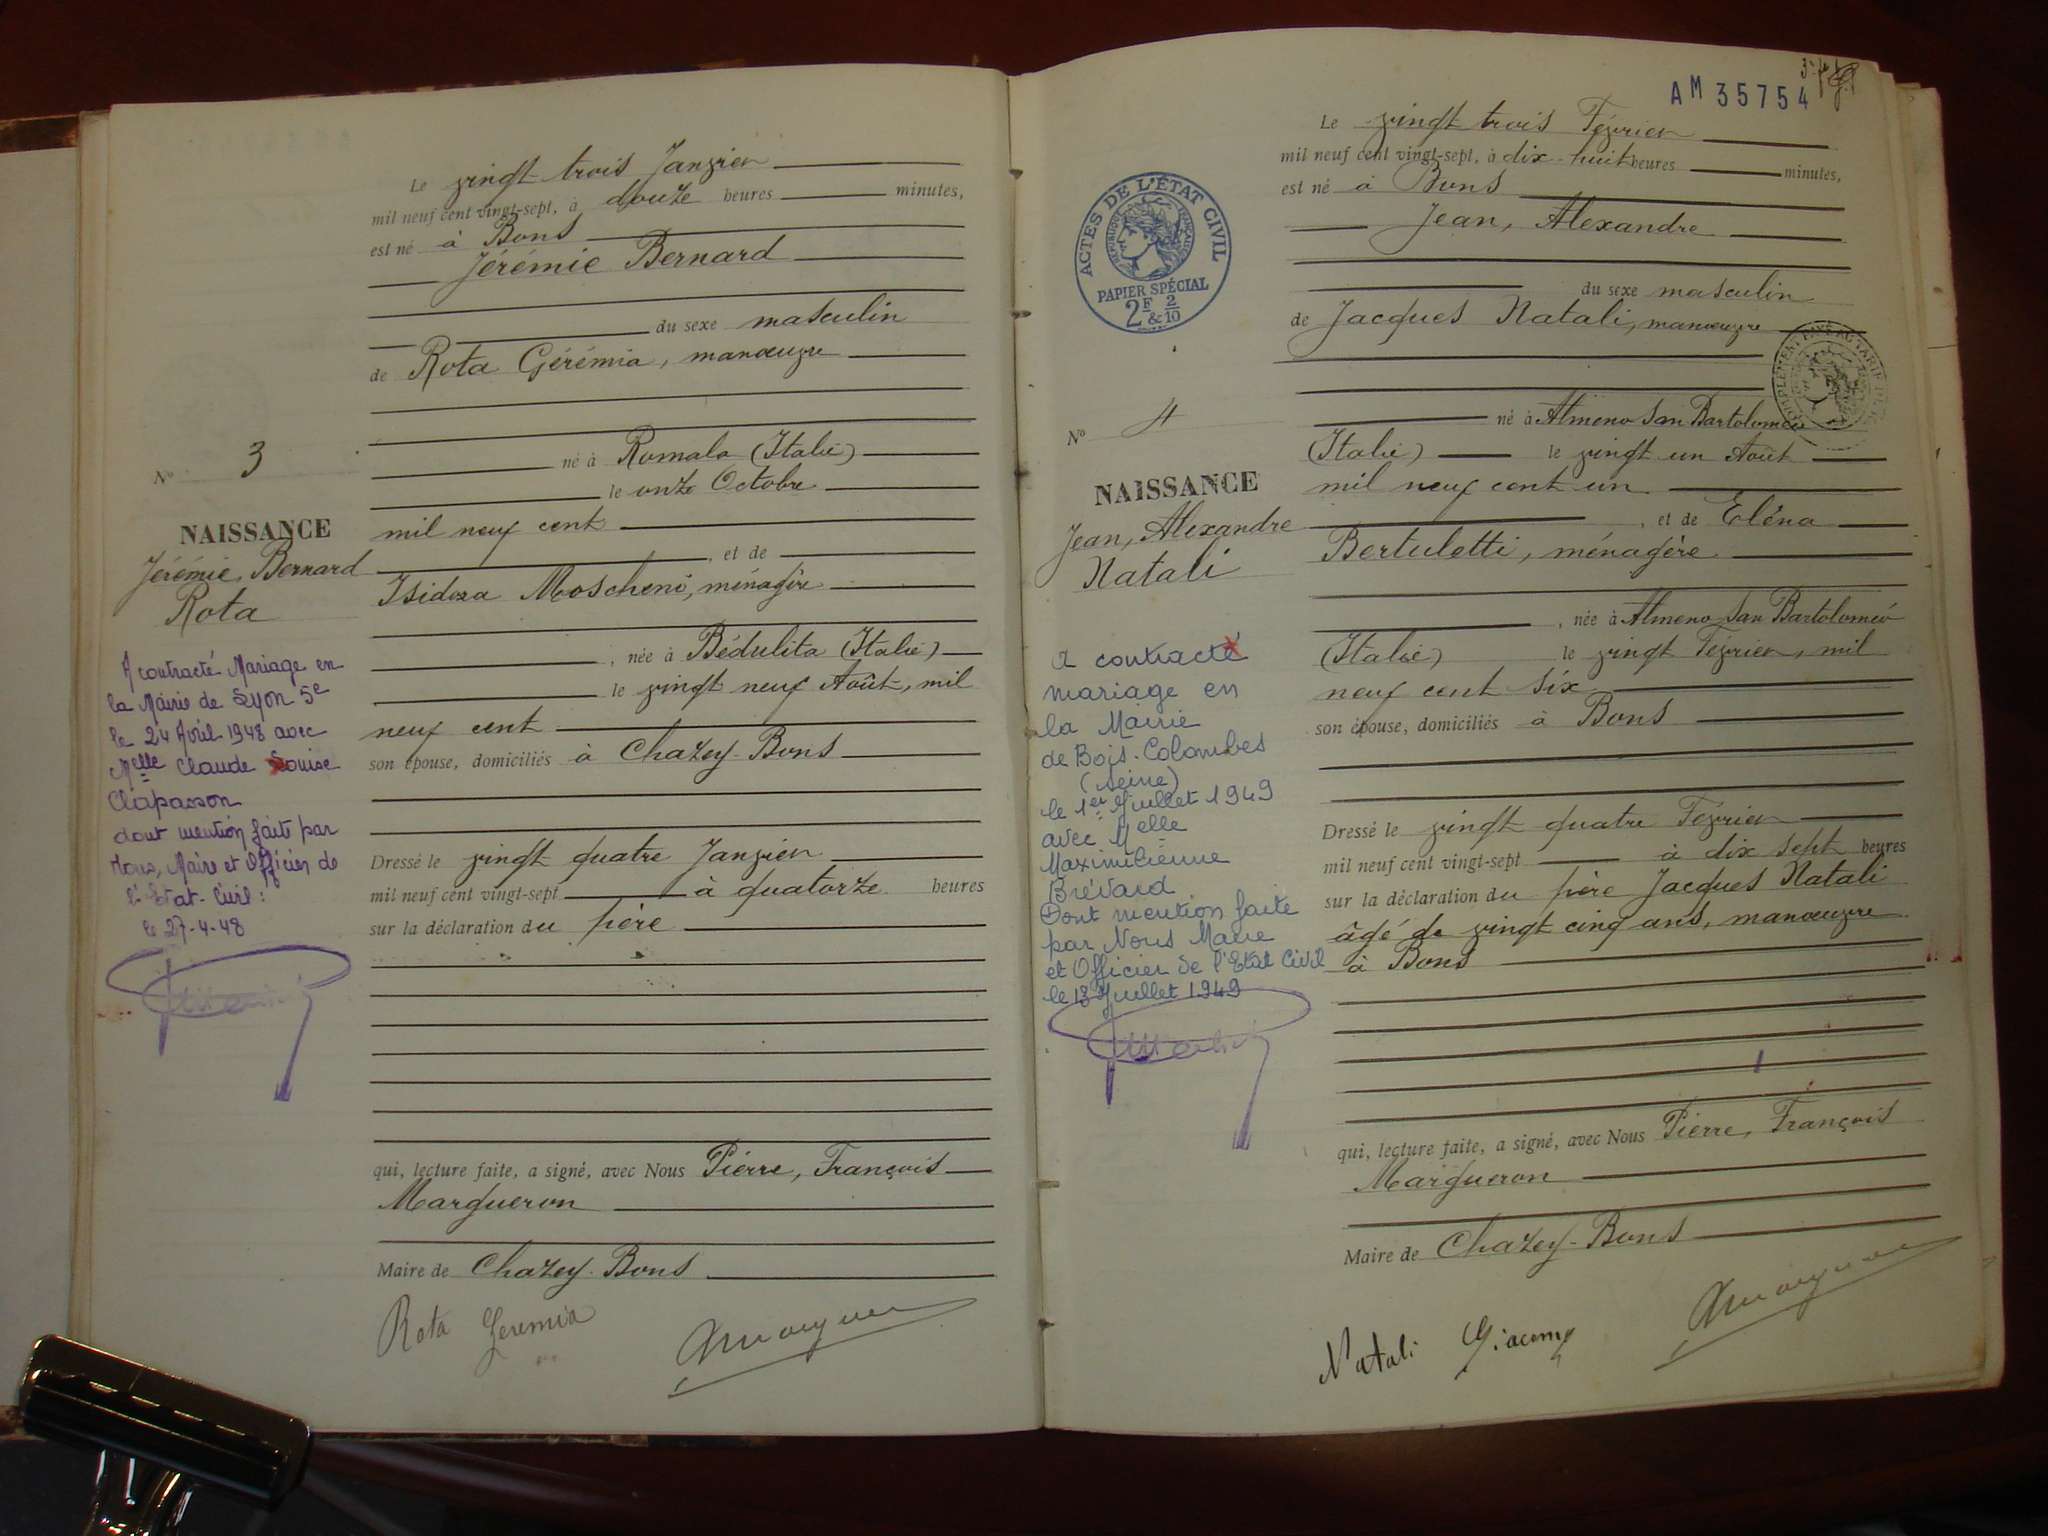 Le vingt trois Janvier
mil neuf cent vingt-sept, à douze heures minutes,
est né à Bons
Jérémie Bernard
du sexe masculin
de Rota Gérémia, manœuvre
né à Romala (Italie)
le onze Octobre
mil neuf cent
, et de
Isidora Moscheni, ménagère
, née à Bédulita (Italie)
le vingt neuf Août, mil
neuf cent
son épouse, domiciliés à Chazey-Bons
Dressé le vingt quatre Janvier
mil neuf cent vingt-sept à quatorze heures
sur la déclaration du père
qui, lecture faite, a signé, avec Nous Pierre, François
Margueron
Maire de Chazey-Bons
Rota Geremia
No 3
NAISSANCE
Jérémie, Bernard
Rota
A contracté Mariage en
la Mairie de Lyon 5e
le 24 Avril 1948 avec
Melle Claude Louise
Clapasson
dont mention faite par
Nous, Maire et Officier de
l'Etat-Civil :
le 27-4-48
AM 35754
Le vingt trois Février
mil neuf cent vingt-sept, à dix-huit heures minutes,
est né à Bons
Jean, Alexandre
du sexe masculin
de Jacques Natali, manœuvre
né à Almeno San Bartolomeo
(Italie) le vingt un Août
mil neuf cent un
, et de Eléna
Bertuletti, ménagère
, née à Almeno San Bartoloméo
(Italie) le vingt Février, mil
neuf cent six
son épouse, domiciliés à Bons
Dressé le vingt quatre Février
mil neuf cent vingt-sept à dix sept heures
sur la déclaration du père Jacques Natali
âgé de vingt cinq ans, manœuvre
à Bons
qui, lecture faite, a signé, avec Nous Pierre, François
Margueron
Maire de Chazey-Bons
Natali Giacomo
ACTES DE L'ÉTAT CIVIL
RÉPUBLIQUE FRANÇAISE
PAPIER SPÉCIAL
2F & 2/10
No 4
NAISSANCE
Jean, Alexandre
Natali
a contracté
mariage en
la Mairie
de Bois-Colombes
(Seine)
le 1er Juillet 1949
avec Melle
Maximilienne
Brévard
Dont mention faite
par Nous Maire
et Officier de l'Etat Civil
le 13 Juillet 1949